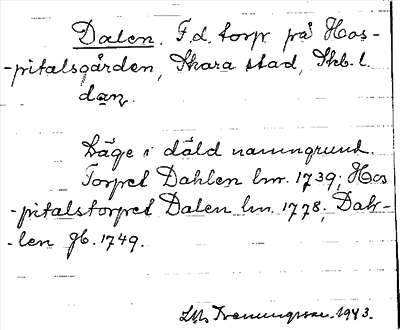 Dalen. F.d. torp på Hos-
-pitalsgården, Skara stad, Skb. l.
dan.
Läge i däld namngrund.
Torpet Dahlen lm. 1739; Hos
-pitalstorpet Dalen lm. 1778; Dah-
-len fb. 1749.
1943.